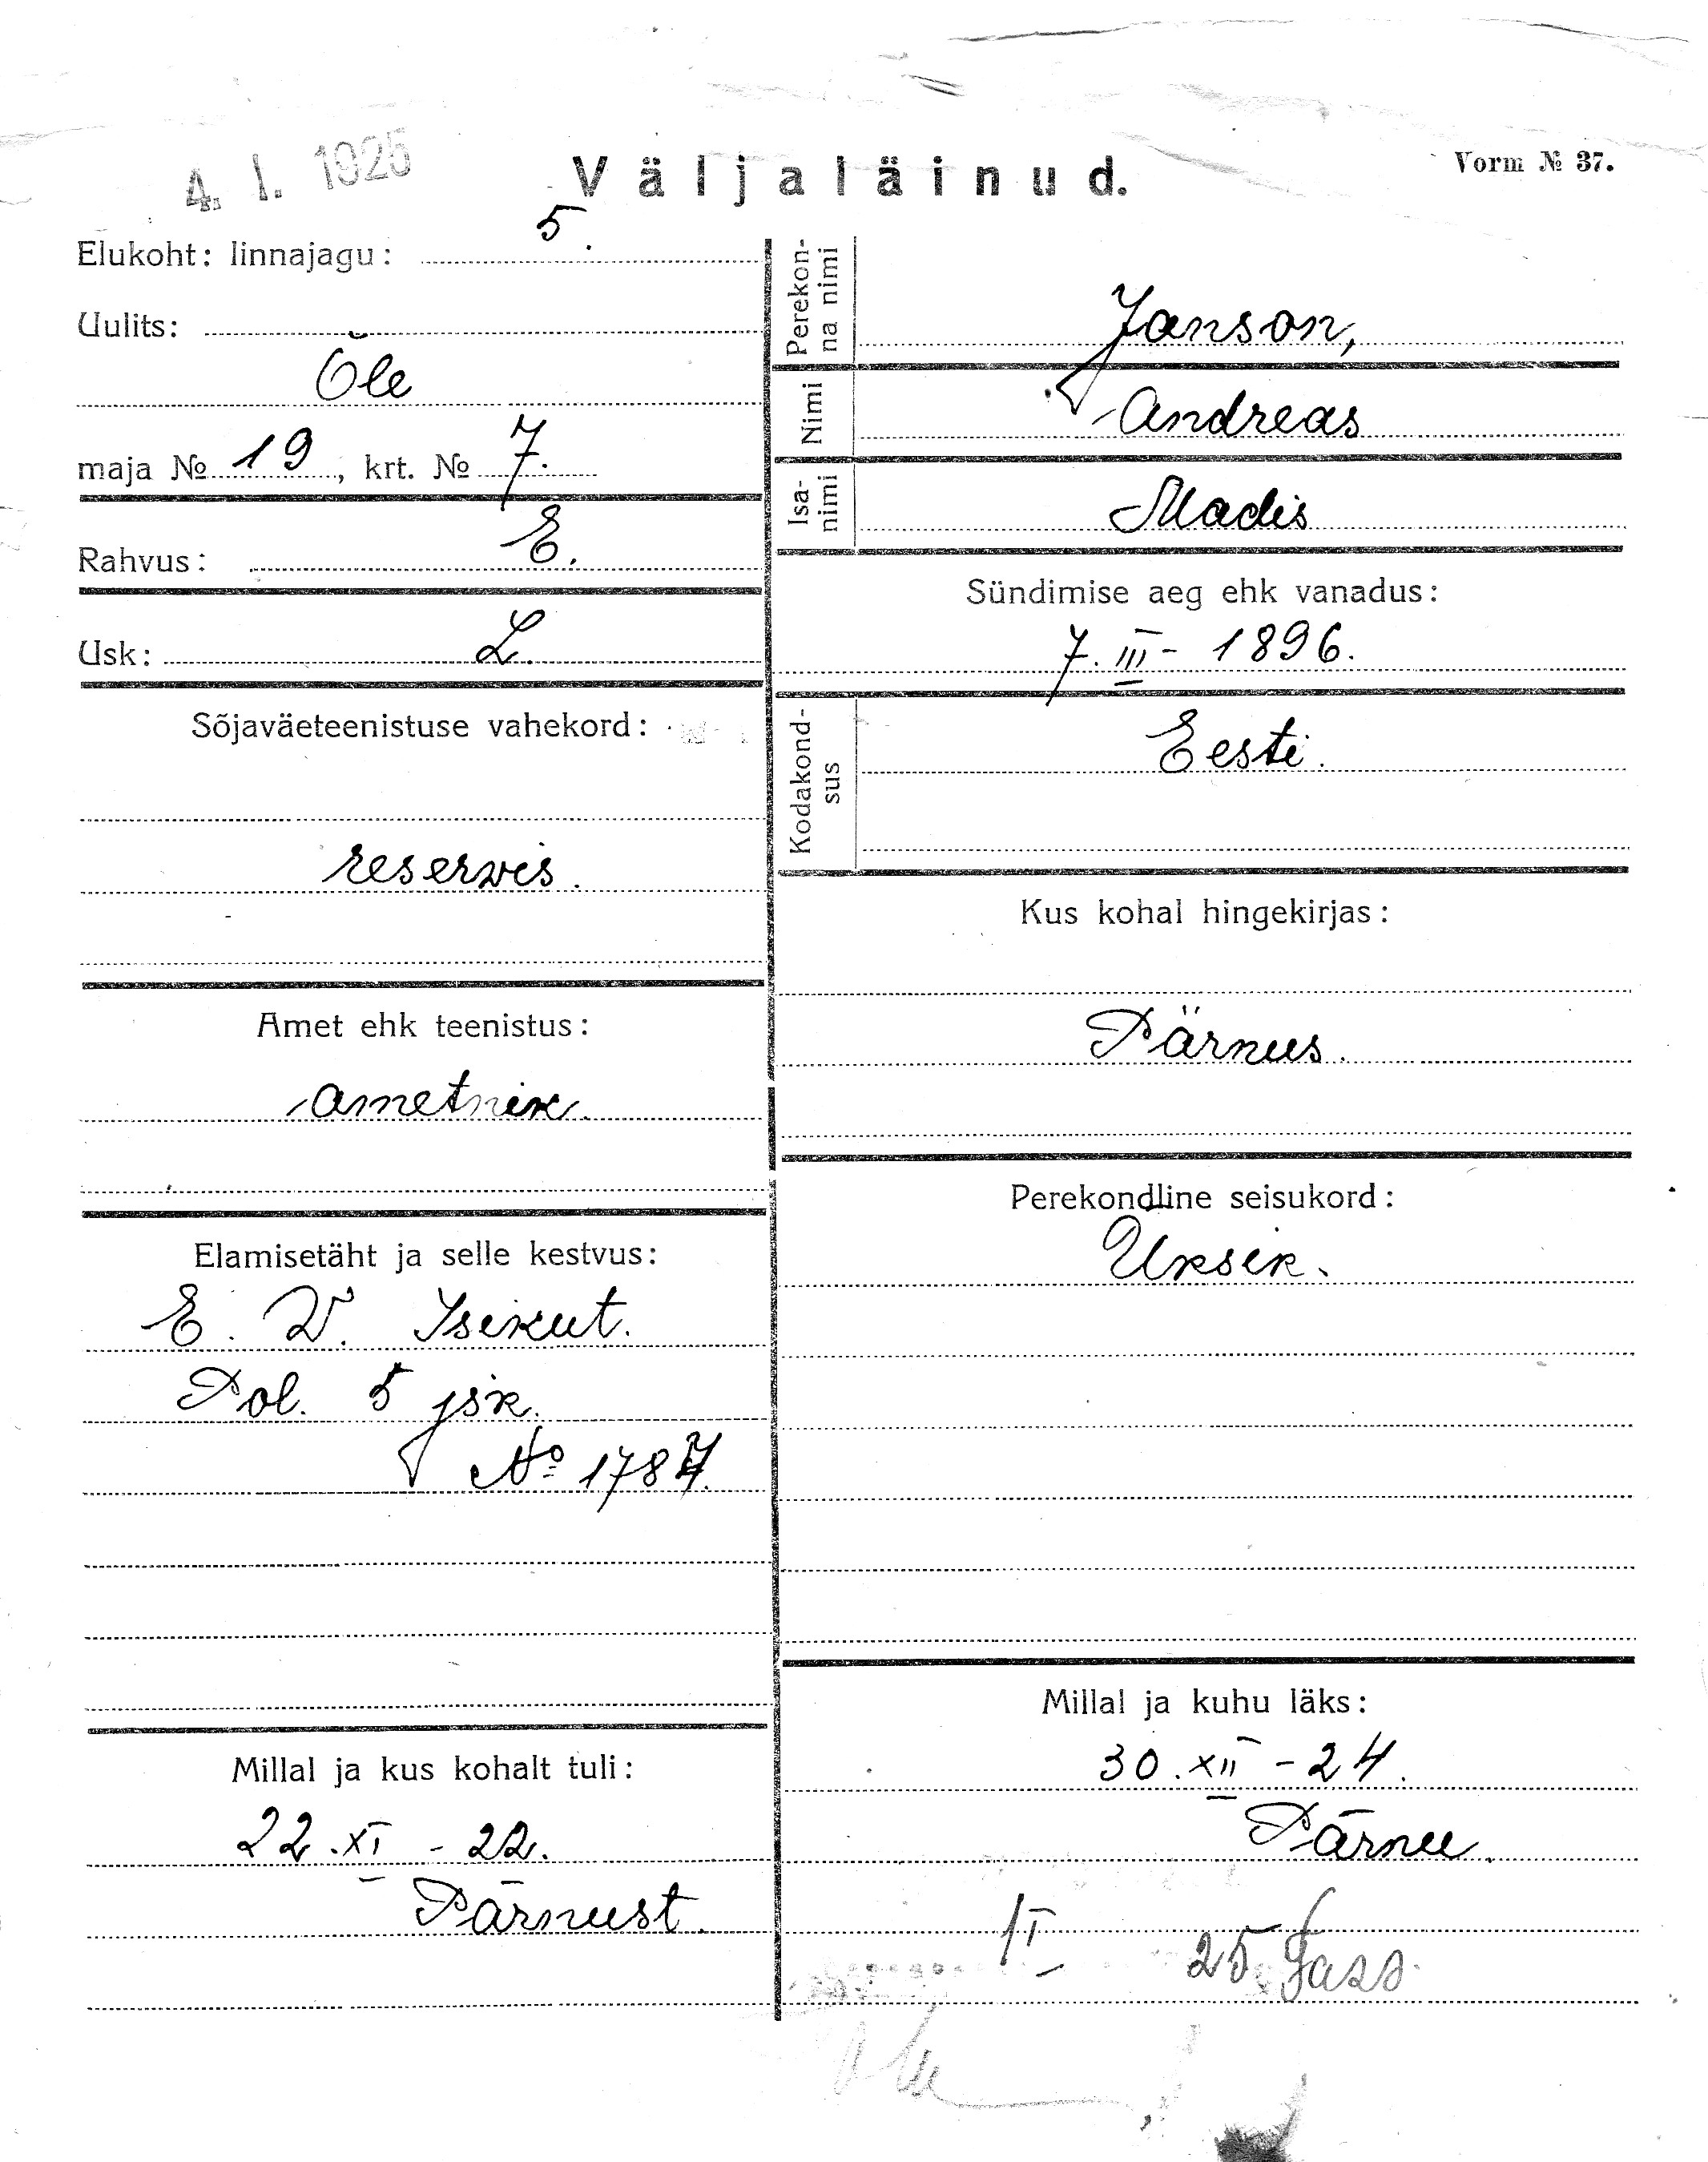 4. I. 1925
Väljaläinud.
Vorm № 37.
Elukoht: linnajagu: 5.
Uulits:
Õle
maja № 19, krt. № 7.
Rahvus: E.
Usk: L.
Sõjaväeteenistuse vahekord:
reservis.
Amet ehk teenistus:
ametnik.
Elamisetäht ja selle kestvus:
E. V. Isikut.
Pol. 5 jsk.
№ 1787.
Millal ja kus kohalt tuli:
22. XI - 22.
Pärnust.
Perekon-
na nimi
Janson,
Nimi
Andreas
Isa-
nimi
Madis
Sündimise aeg ehk vanadus:
7. III - 1896.
Kodakond-
sus
Eesti.
Kus kohal hingekirjas:
Pärnus.
Perekondline seisukord:
Üksik.
Millal ja kuhu läks:
30. XII - 24.
Pärnu.
1 I 25.